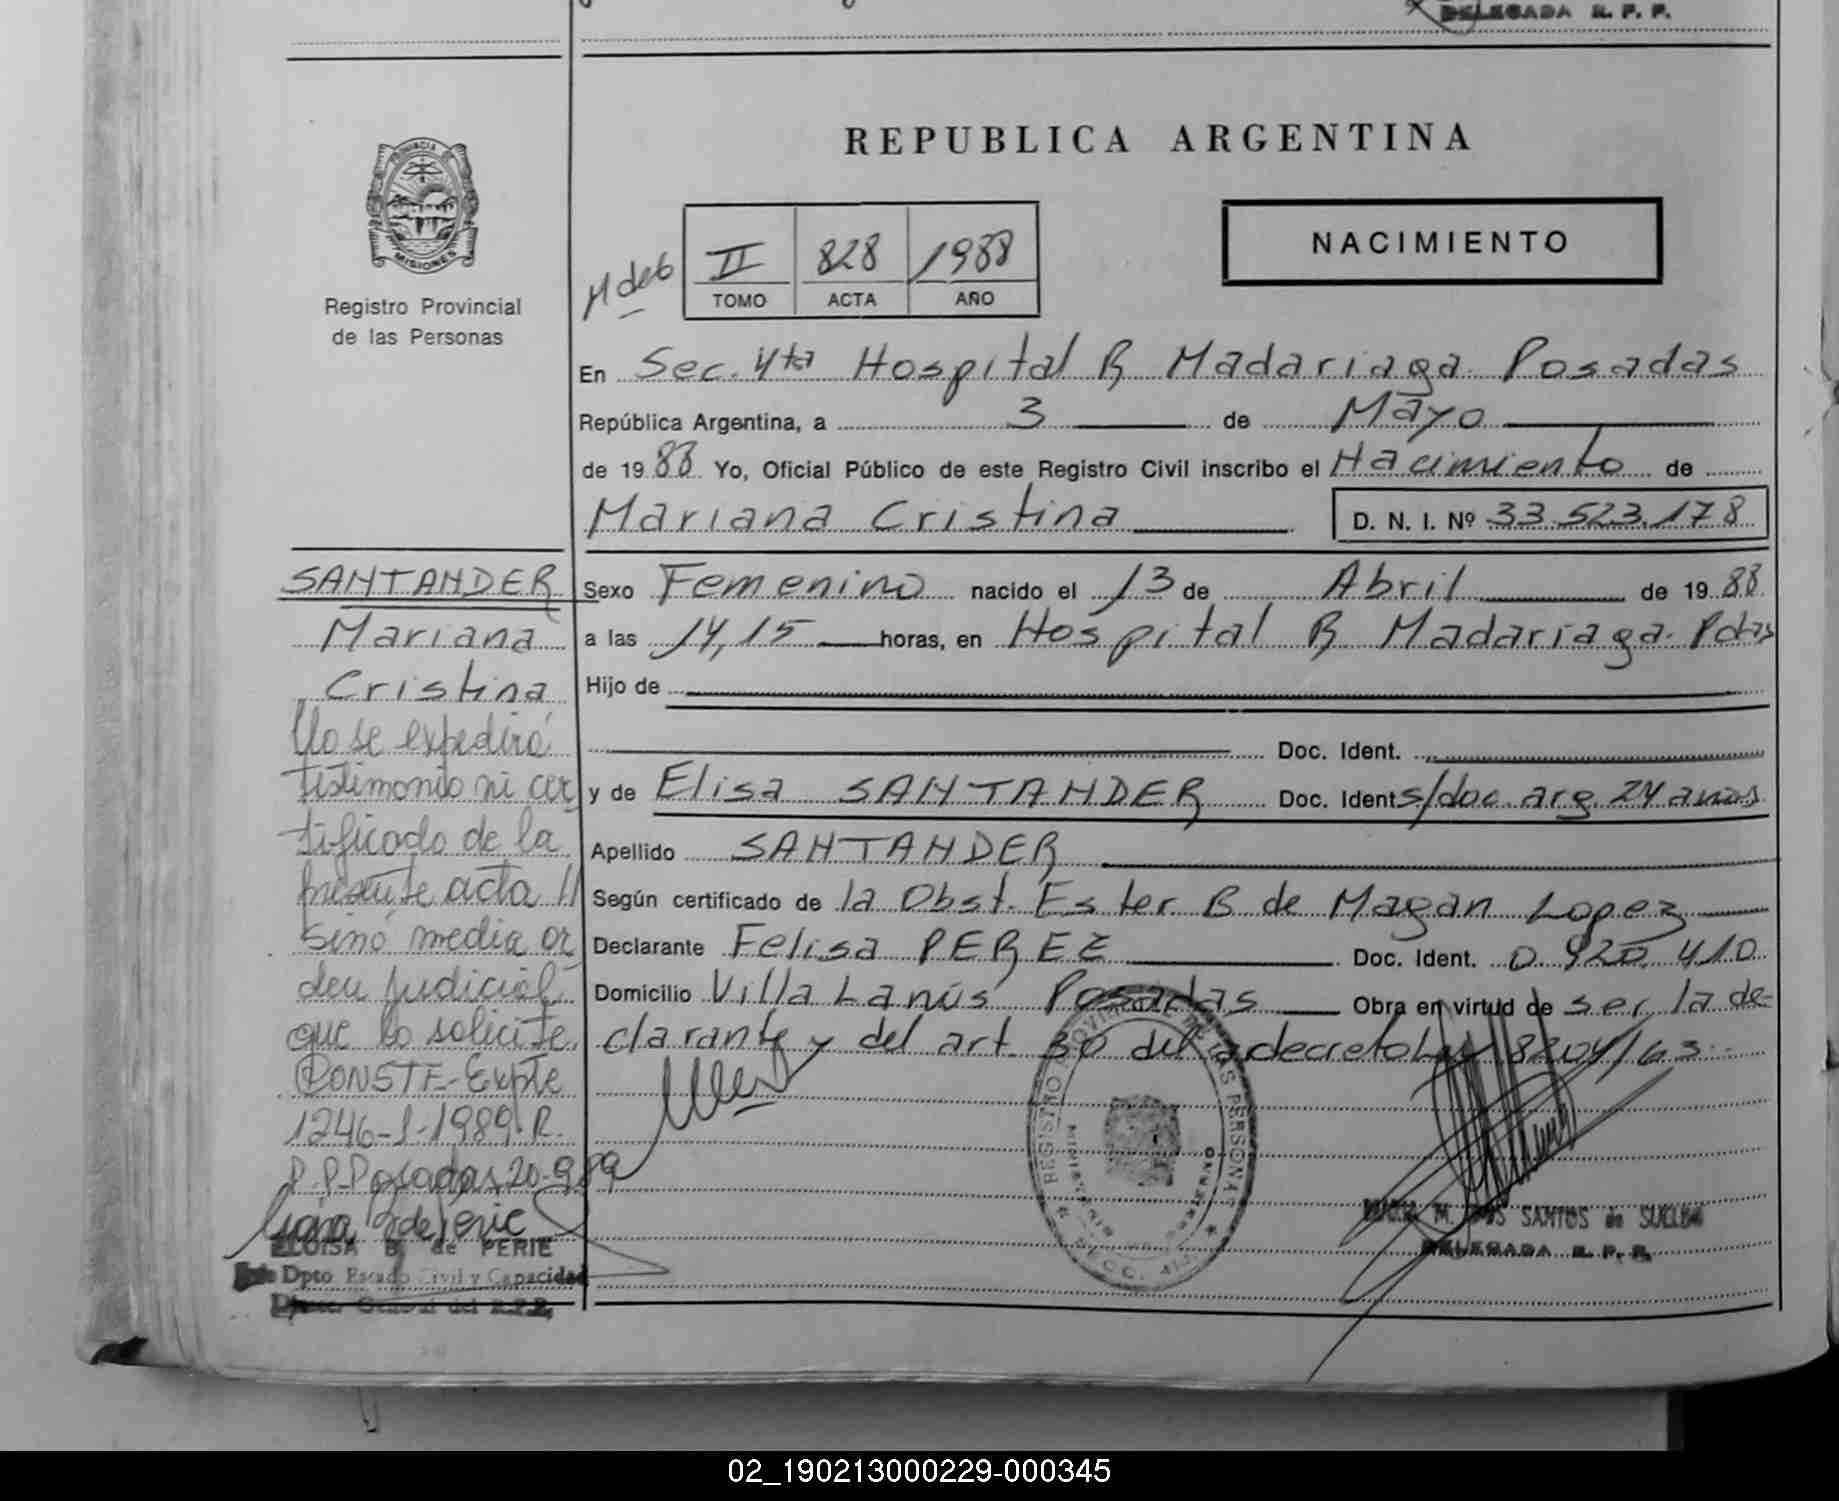 DELEGADA R. P. P.
PROVINCIA DE
MISIONES
Registro Provincial
de las Personas
REPUBLICA ARGENTINA
NACIMIENTO
II 828 1988
TOMO ACTA AÑO
En Sec. 4ta Hospital R Madariaga Posadas
República Argentina, a 3 de Mayo
de 19 88 Yo, Oficial Público de este Registro Civil inscribo el Nacimiento de
Mariana Cristina D. N. I. Nº 33.523.178
SANTANDER
Mariana
Cristina
No se expedirá
testimonio ni cer
tificado de la
presente acta //
sino media or
den judicial
que lo solicite.
CONSTE-Expte
1246-S-1989 R.
P. P. Posadas, 20-9-89
ELOISA B. de PERIE
Dpto. Estado Civil y Capacidad
General del R.P.P.
Sexo Femenino nacido el 13 de Abril de 19 88
a las 14,15 horas, en Hospital R Madariaga. Pdas
Hijo de
Doc. Ident.
y de Elisa SANTANDER Doc. Ident s/doc. arg. 24 anos
Apellido SANTANDER
Según certificado de la Obst. Ester B de Magan Lopez
Declarante Felisa PEREZ Doc. Ident. 0.920.410
Domicilio Villa Lanús Posadas Obra en virtud de ser la de-
clarante y del art. 30 del decreto Ley 8204/63.-
REGISTRO PROVINCIAL DE LAS PERSONAS
M. DOS SANTOS de
DELEGADA R. P. P.
02_190213000229-000345